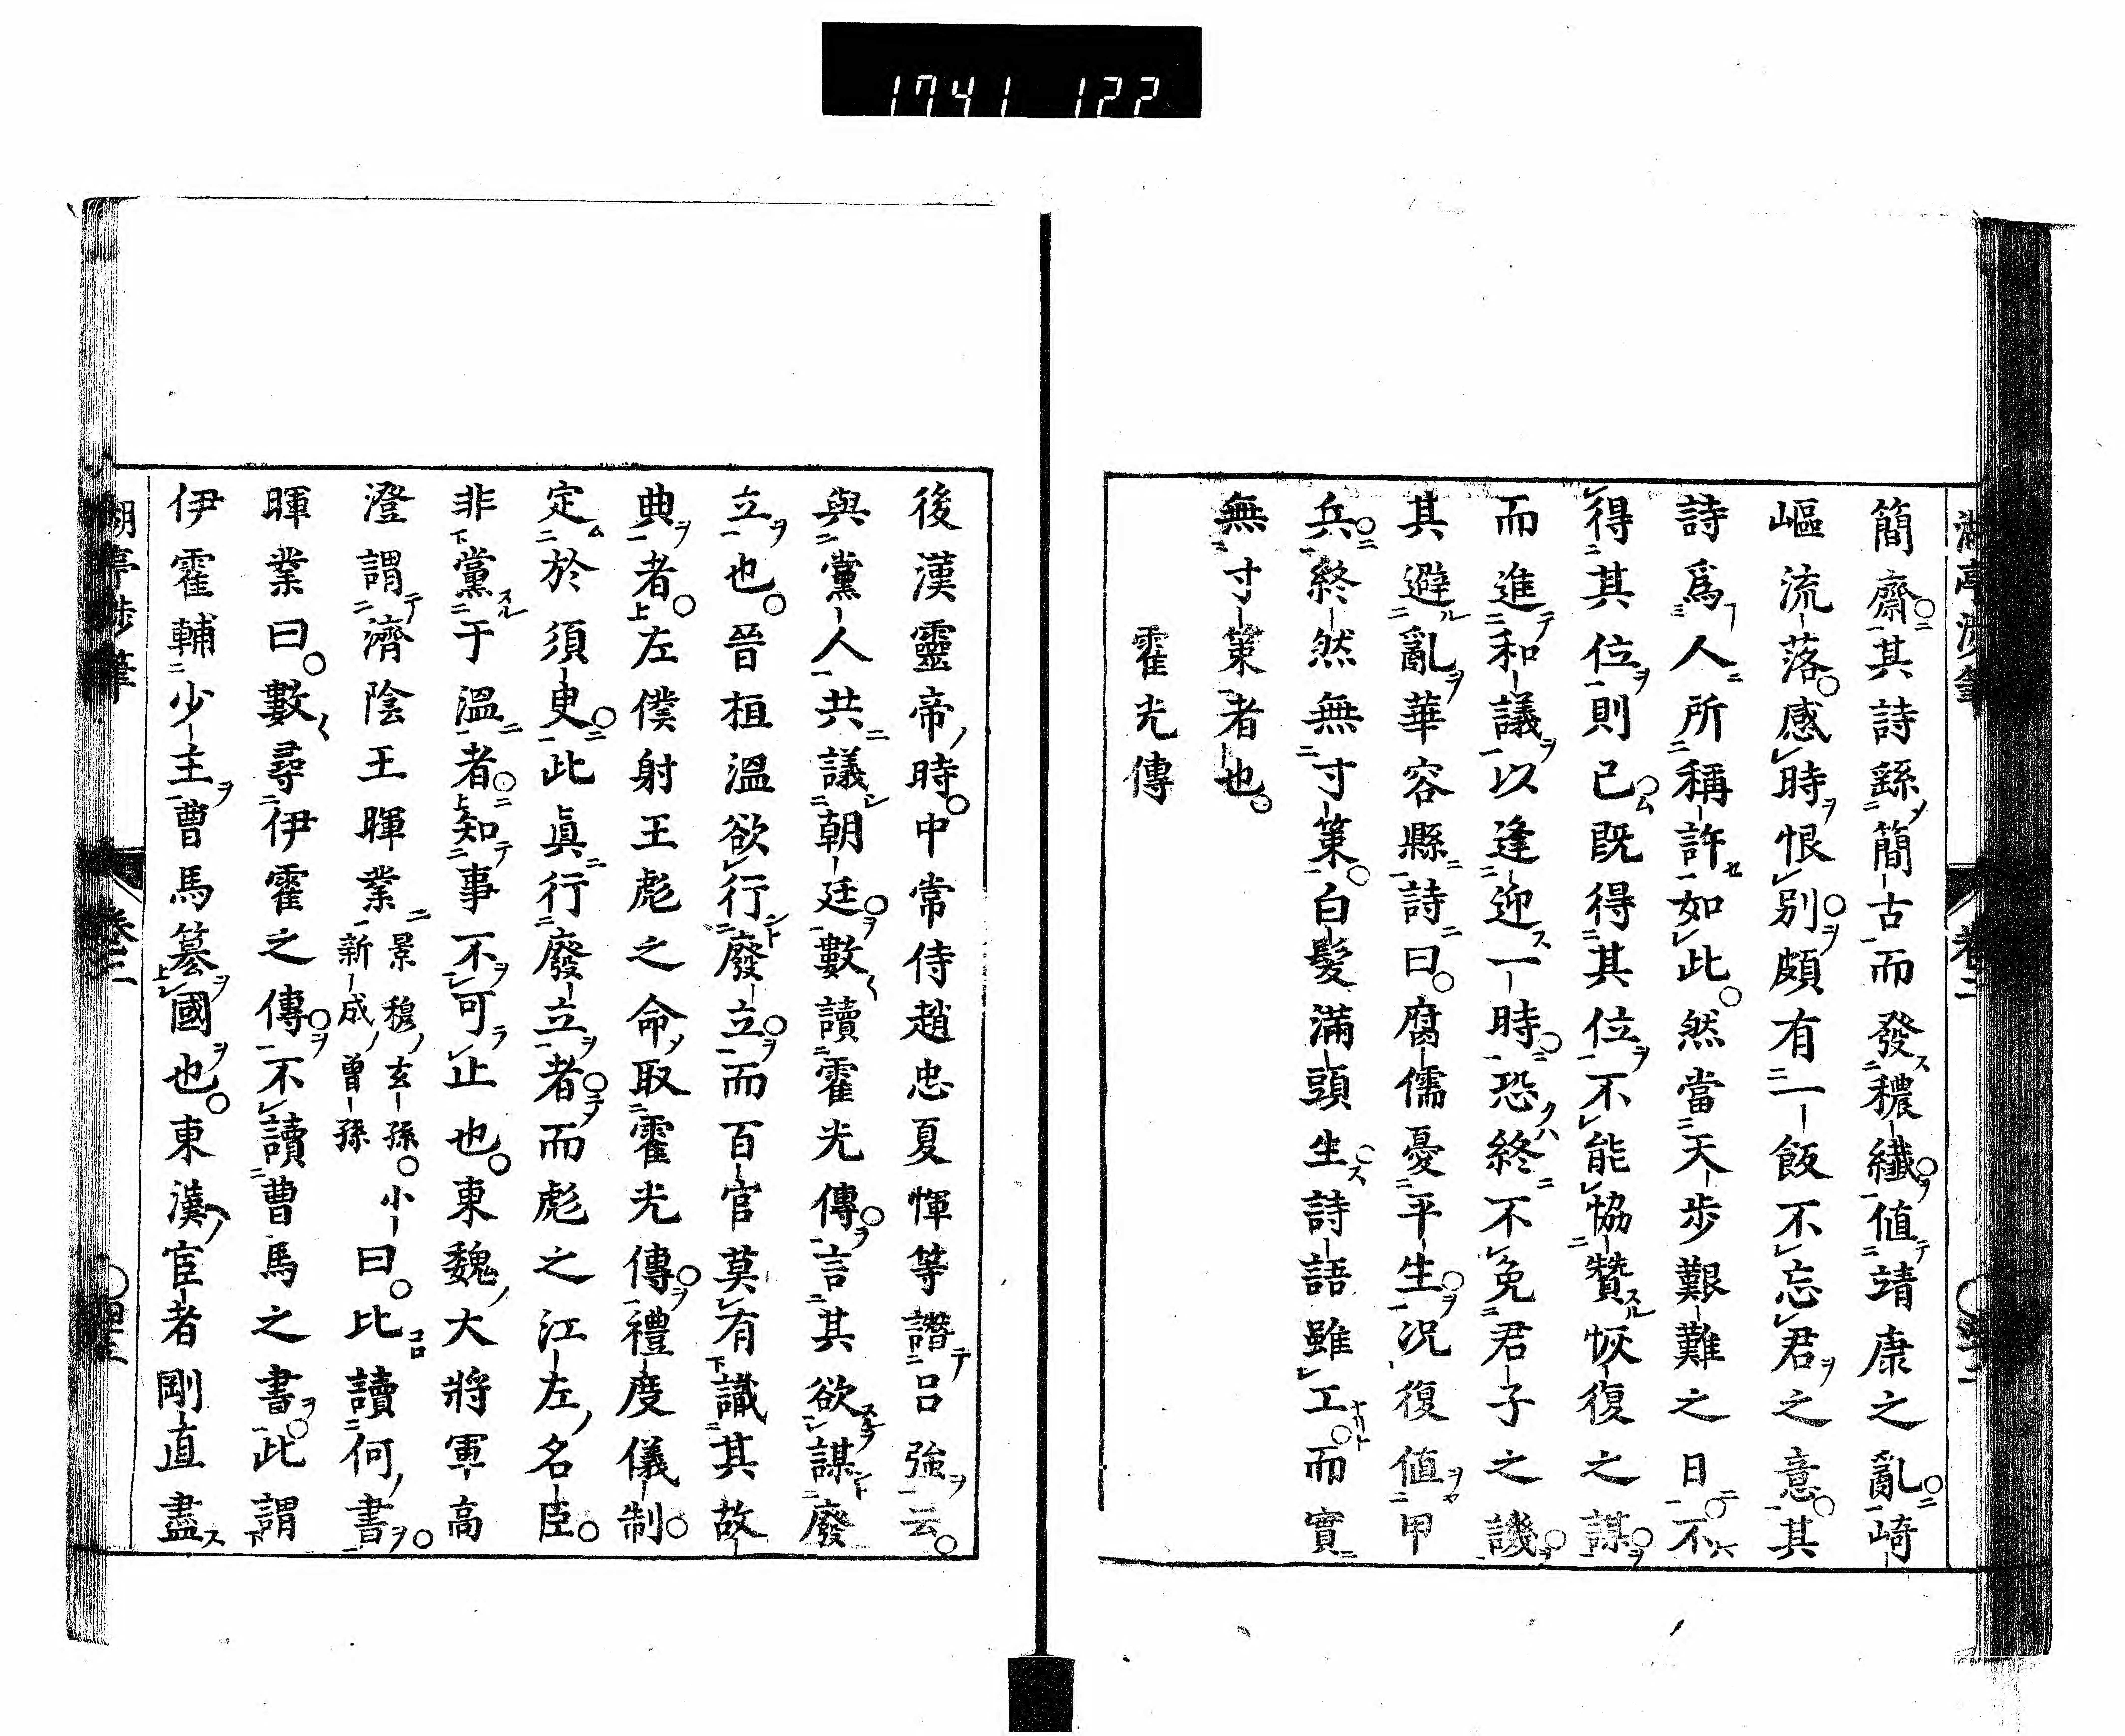 1741 122
簡齋其詩繇簡古而發穠纎値靖康之亂崎
嶇流落感時恨別頗有一飯不忘君之意其
詩爲人所稱許如此然當天步艱難之日不
得其位則已既得其位不能協贊恢復之謀
而進和議以逢迎一時恐終不免君子之譏
其避亂華容縣詩曰腐儒憂平生况復値甲
兵終然無寸策白髮滿頭生詩語雖工而實
無寸策者也
霍光傳
後漢靈帝時中常侍趙忠夏惲等譖呂強云
與黨人共議朝廷數讀霍光傳言其欲謀廢
立也晉桓溫欲行廢立而百官莫有識其故
典者左僕射王彪之命取霍光傳禮度儀制
定於須臾此眞行廢立者而彪之江左名臣
非黨于溫者知事不可止也東魏大將軍高
澄謂濟陰王暉業景穆玄孫小新成曾孫曰比讀何書
暉業曰數尋伊霍之傳不讀曹馬之書此謂
伊霍輔少主曹馬簒國也東漢宦者剛直盡
湖亭渉筆
卷二